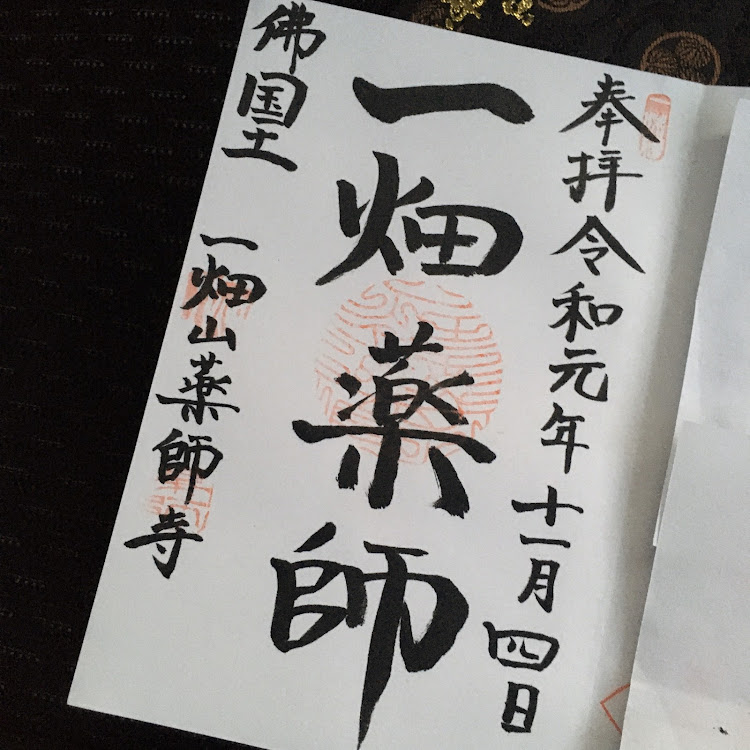 奉拝令和元年十一月四日
一畑薬師
佛国土
一畑山薬師寺